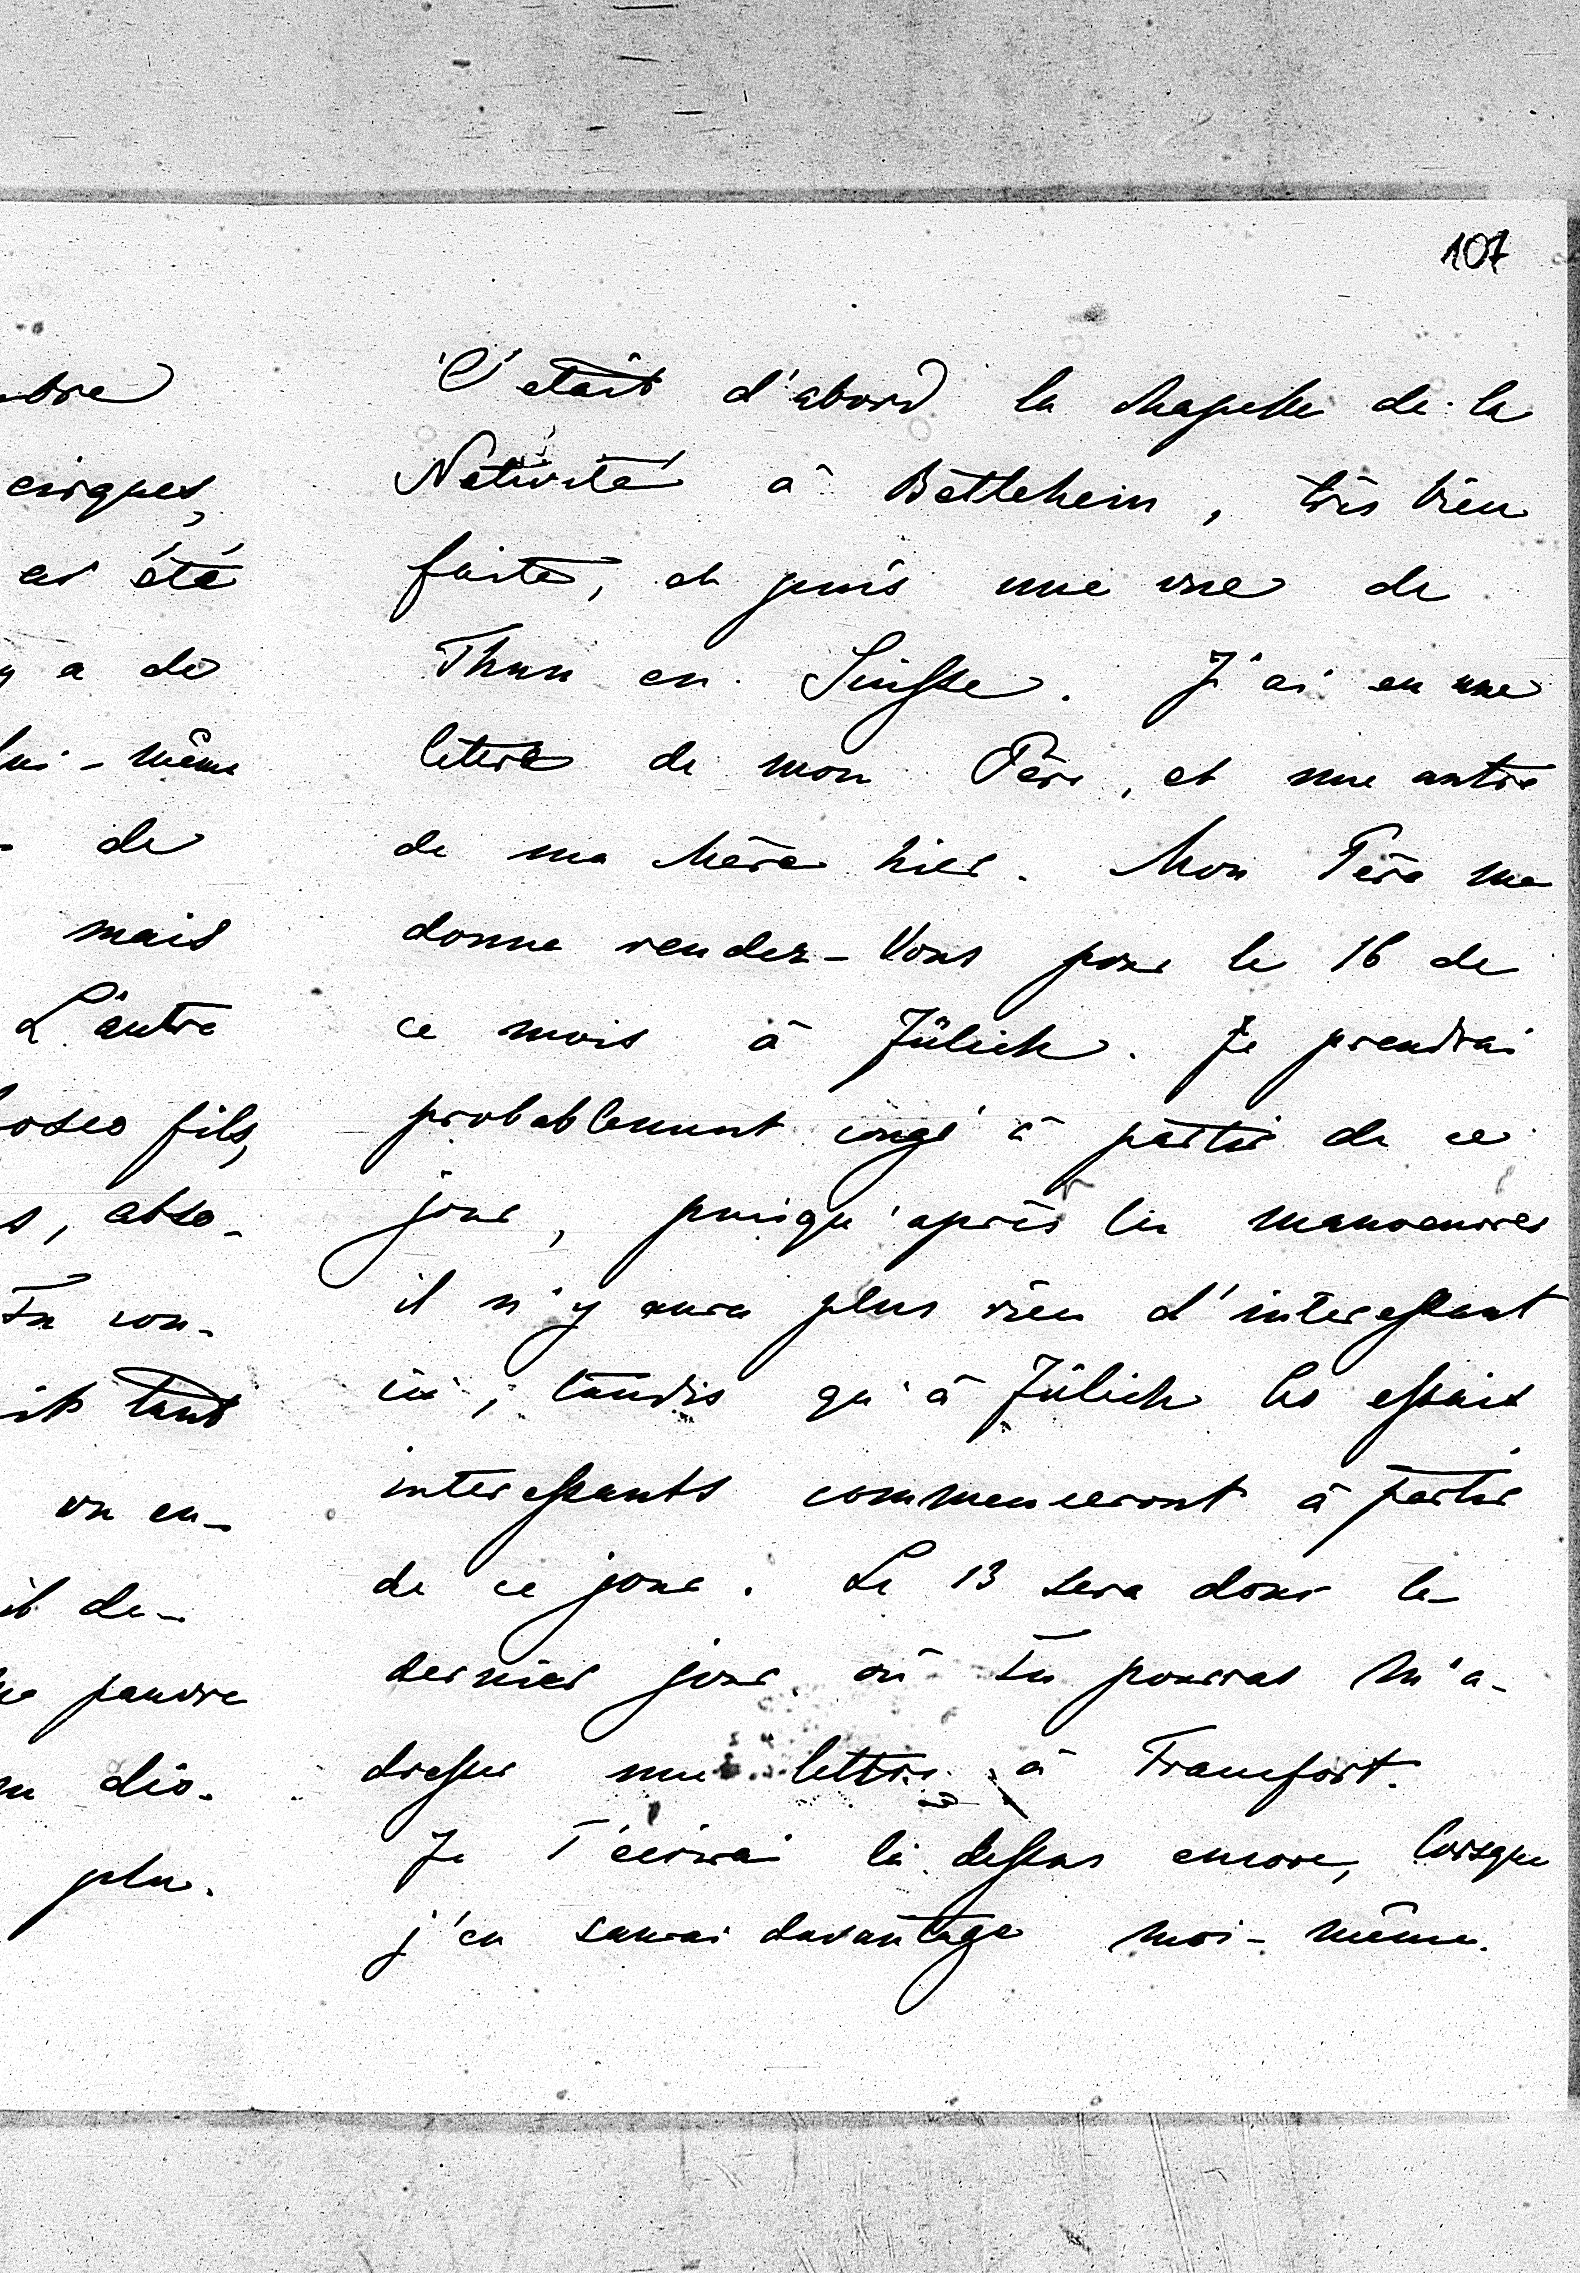 107
bre
cirques,
as été
y a de
lui-même
de
mais
L'autre
fils,
s, abso-
Tu con-
it tant
on en-
it de-
pauvre
dio-
plu.
C'etait d'abord la chapelle de la
Nativité à Bethlehem, très bien
faite, et puis une vue de
Thun en Suisse. J'ai eu une
lettre de mon Père, et une autre
de ma Mère hier. Mon Père me
donne rendez-Vous pour le 16 de
ce mois à Jülich. Je prendrai
probablement congé à partir de ce
jour, puisqu'après les manoeuvres
il n'y aura plus rien d'interessant
ici, tandis qu'à Jülich les essais
interessants commenceront à partir
de ce jour. Le 13 sera donc le
dernier jour où Tu pourras m'a-
dresser une lettre à Francfort.
Je T'écrirai là dessus encore, lorsque
j'en saurai davantage moi-même.